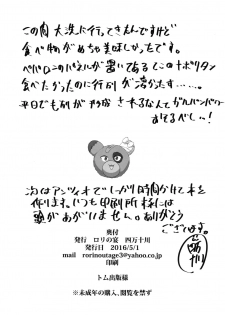 この間大洗に行ってきたんですけど
食べ物がめちゃ美味しかったです。
ペパロニのパネルが置いてあるとこのナポリタン
食べたかったのに行列が凄かった……。
平日でも列が形成されるなんてガルパンパワー
すげるべし…!
次はアンツィオでしっかり時間かけて本を
作ります。いつも印刷所様には
頭があがりません。ありがとう
ございます。
奥付
発行 ロリの宴 四万十川
発行日 2016/5/1
mail rorinoutage3@yahoo.co.jp
印刷
トム出版様
※未成年の購入、閲覧を禁ず